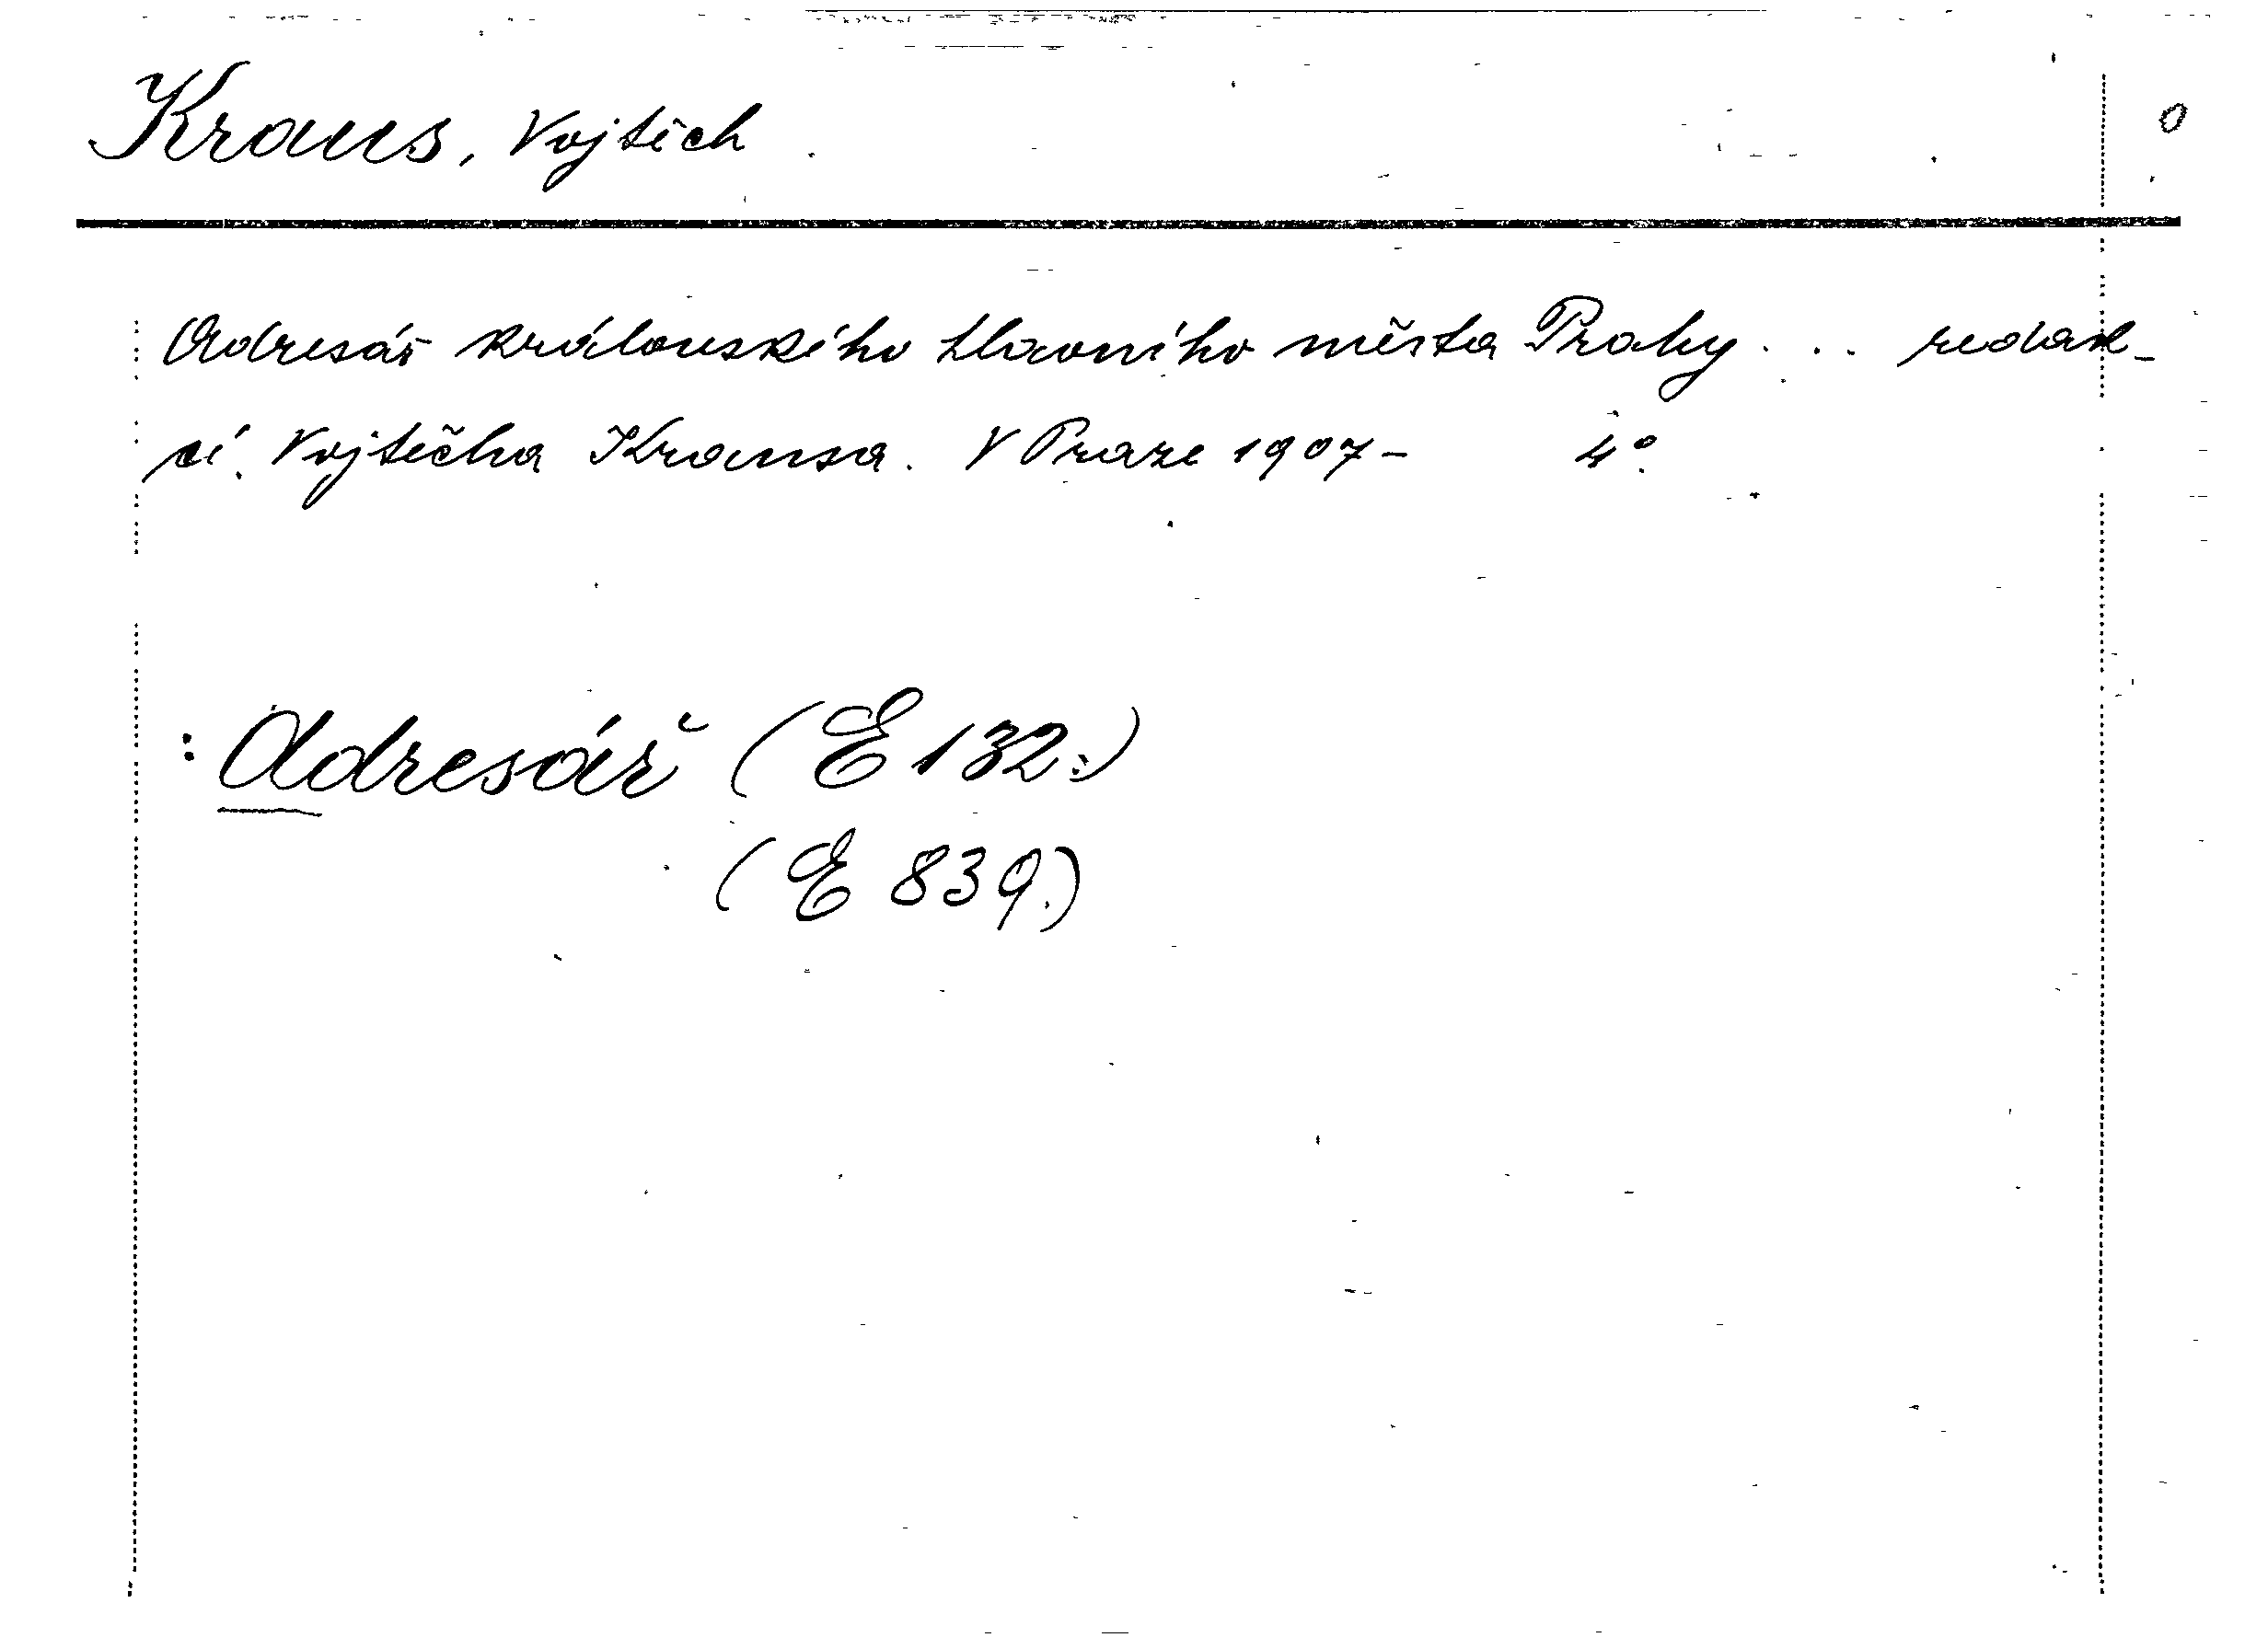 Kraus, Vojtěch 0
Adresář královského hlavního města Prahy ... redak-
cí Vojtěcha Krausa. V Praze 1907- 4°.
: Adresář (E 132.)
(E 839.)